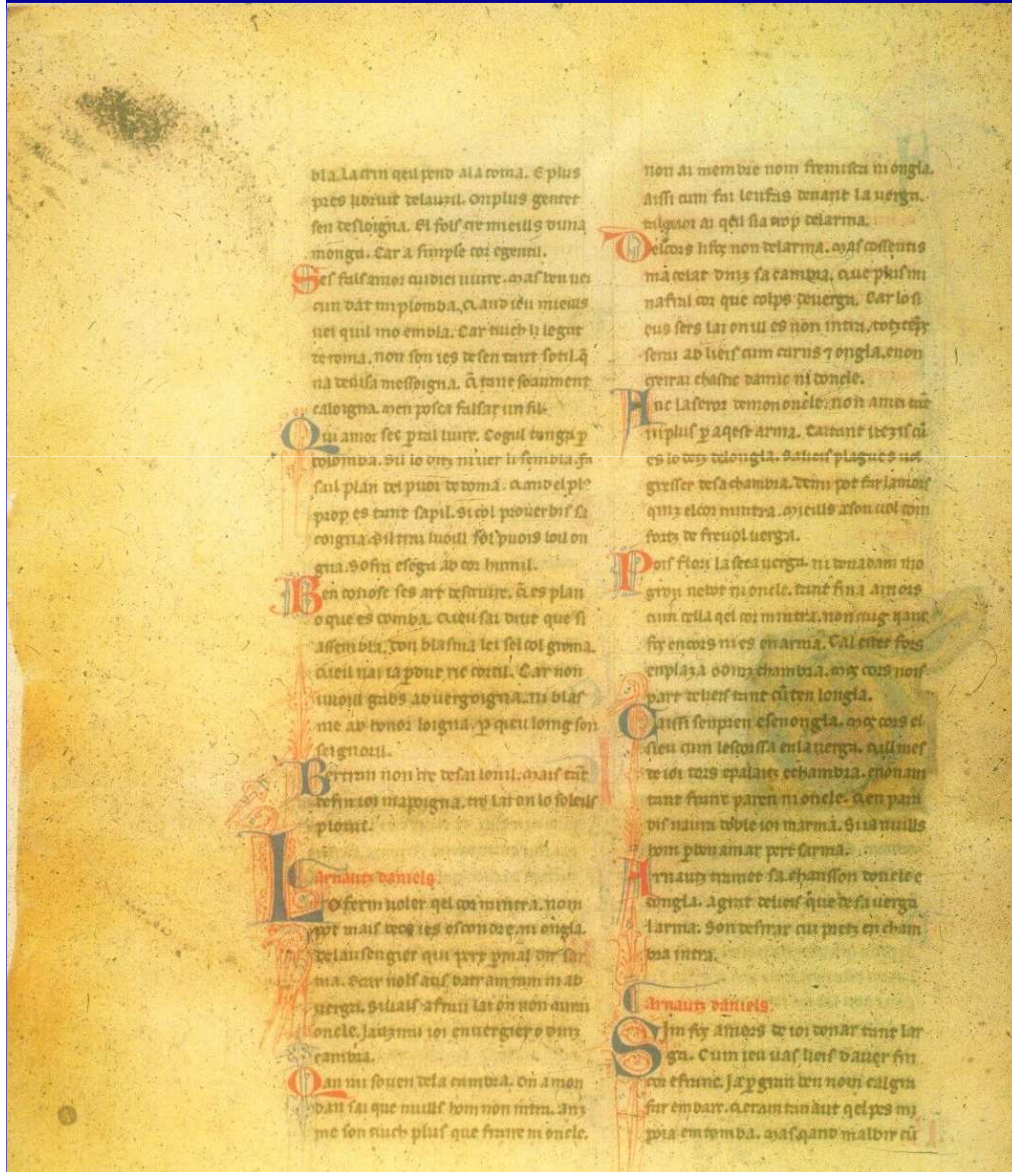 bla. La crin qeil pend ala coma. E plus
pres li bruit delauzil. On plus gentet
sen desloigna. El fols cre mieills duna
monga. Car a simple cor egentil.
Ses fals amor cudiei viure. Mas ben vei
cun dat mi plomba. Quand ieu mieills
vei quil mo embla. Car tuich li legat
de roma. non son ies de sen tant sotil. q̄
na devisa messoigna. Q̃ tant soaument
caloigna. men posca falsar un fil.
Qui amor sec per tal liure. Cogul tenga p
colomba. Sil lo ditz ni ver li sembla. fa
sail plan del puoi de doma. Quand el plꝰ
prop es tant sapil. Si col proverbis sa
coigna. Sil trai luoill sol puois loil on
gna. Sofra esega ab cor humil.
Ben conosc ses art descriure. Q̃ es plan
o que es comba. Queu sai drut que si
assembla. don blasma lei sel col groma.
Queil nai ia pdut ric cortil. Car non
vuoill gabs ab vergoigna. ni blas
me ab honor loigna. P qeu loing son
seignoril.
Bertran non cre desai lo nil. Mais tāt
de fin ioi mapoigna. tro lai on lo soleils
plovil.
Arnautz daniels
Lo ferm voler qel cor mintra. nom
pot mais becs ies escondre. ni ongla.
de lausengier qui pert p mal dir sar
ma. E car nols aus batram ram ni ab
verga. Sivals a frau lai on non aurai
oncle. Jauzirai ioi en vergier o dinz
cambra.
Qan mi soven dela cambra. On a mon
dan sai que nuills hom non intra. Anz
me son tuich plus que fraire ni oncle.
non ai membre nom fremisca ni ongla.
aissi cum fai lenfas denant la verga.
tal paor ai qeil sia trop de larma.
Del cors li fos non de larma. Mas cossentis
ma celat dinz sa cambra. Que plus mi
nafral cor que colps de verga. Car lo si
eus sers lai on ill es non intra. totz tēps
serai ab lieis cum carns ⁊ ongla. e non
creirai chastic damic ni doncle.
Anc la seror de mon oncle. non amei tāt
ni plus p aqest arma. Caitant vezis cū
es lo detz de longla. Sa lieis plagues vol
gresser de sa chambra. De mi pot far lamors
qinz el cor mintra. Mieills a son vol com
fortz de frevol verga.
Pois flori la seca verga. ni den adam mo
gron nebot ni oncle. tant fina amors
cum cella qel cor mintra. non cuig qanc
fos en cors ni es en arma. Cal estei fors
en plaza o dinz chambra. Mos cors nois
part de lieis tant cū ten longla.
Caissi senpren e senongla. Mos cors el
sieu cum lescorssa en la verga. Qill mes
de ioi tors e palaitz e chambra. e non am
tant fraire paren ni oncle. Q̃ en para
dis naura doble ioi marma. Si ia nuills
hom p ben amar pert sarma.
Arnautz tramet sa chansson doncle e
dongla. a grat de lieis que de sa verga
larma. Son desirat cui pretz en cham
bra intra.
Arnautz daniels.
Sim fos amors de ioi donar tant lar
ga. Cum ieu vas lieis daver fin
cor e franc. Ja p gran ben nom calgra
far embarc. Qeram tan aut qel pes mi
poia em tomba. Mas qand malbir cū